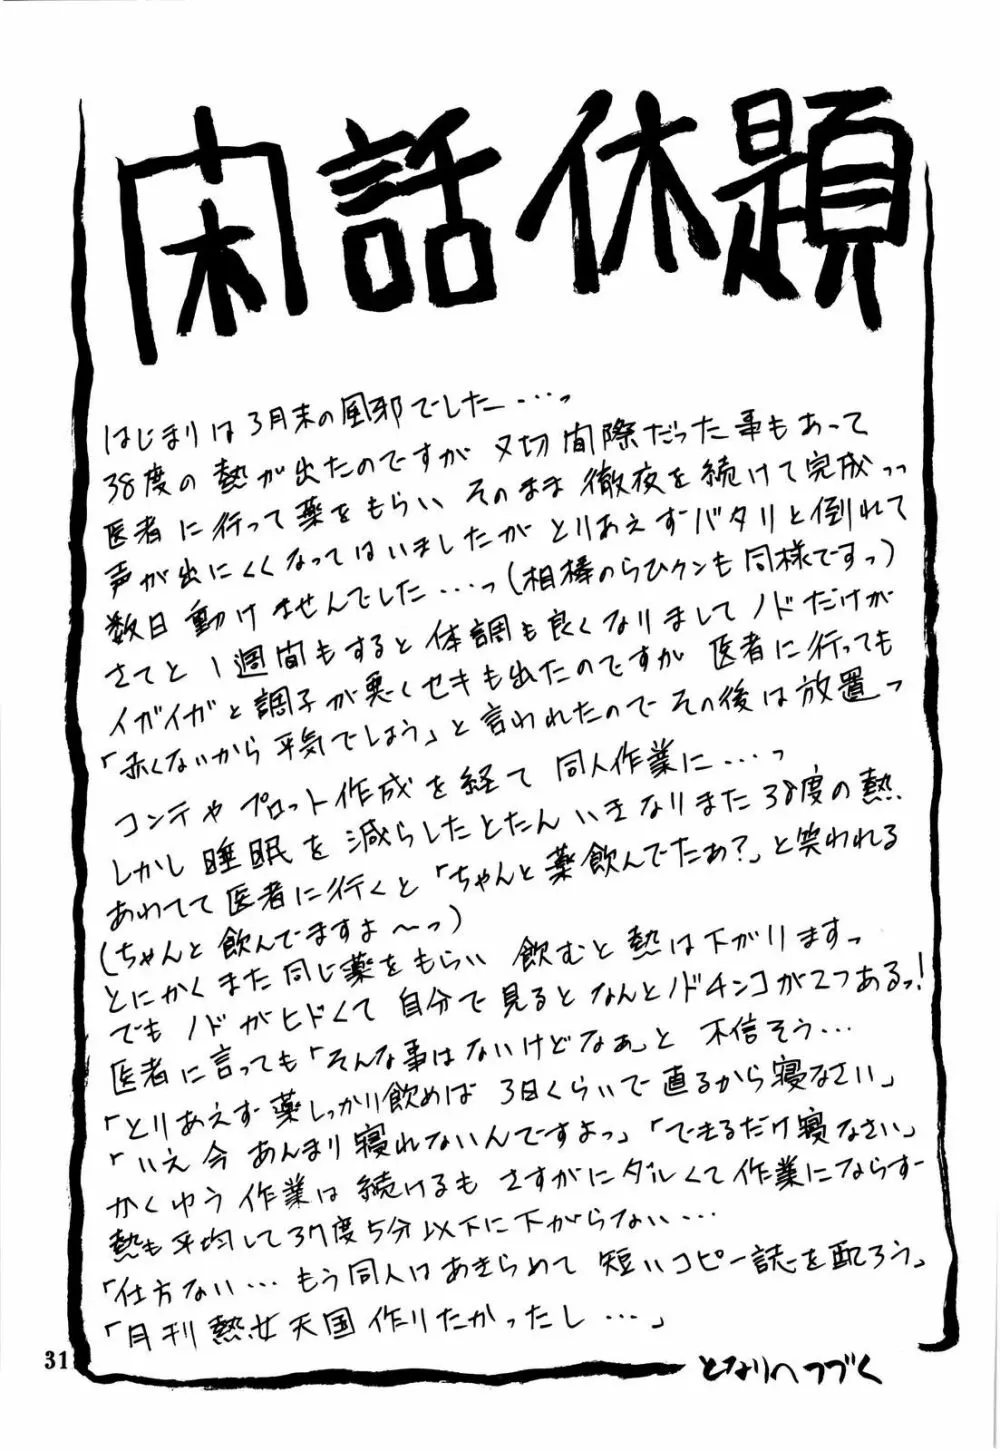 閑話休題
はじまりは3月末の風邪でした…っ
38度の熱が出たのですが〆切間際だった事もあって
医者に行って薬をもらい そのまま徹夜を続けて完成っっ
声が出にくくなってはいましたが とりあえずバタリと倒れて
数日動けませんでした…っ(相棒のらひクンも同様ですっ)
さてと 1週間もすると体調も良くなりまして ノドだけが
イガイガと調子が悪くセキも出たのですが 医者に行っても
「赤くないから平気でしょう」と言われたので その後は放置っ
コンテやプロット作成を経て 同人作業に…っ
しかし睡眠を減らしたとたん いきなりまた38度の熱
あわてて医者に行くと「ちゃんと薬飲んでたぁ?」と笑われる
(ちゃんと飲んでますよ〜っ)
とにかくまた同じ薬をもらい 飲むと熱は下がりますっ
でも ノドがヒドくて 自分で見るとなんとノドチンコが2つあるっ!
医者に言っても「そんな事はないけどなぁ」と 不信そう…
「とりあえず薬しっかり飲めば 3日くらいで直るから寝なさい」
「いえ今 あんまり寝れないんですよっ」「できるだけ寝なさい」
かくゆう作業は続けるも さすがにダルくて作業にならず
熱も平均して37度5分以下に下がらない…
「仕方ない…もう同人はあきらめて 短いコピー誌を配ろう」
「月刊熱女天国作りたかったし…」
となりへつづく
31